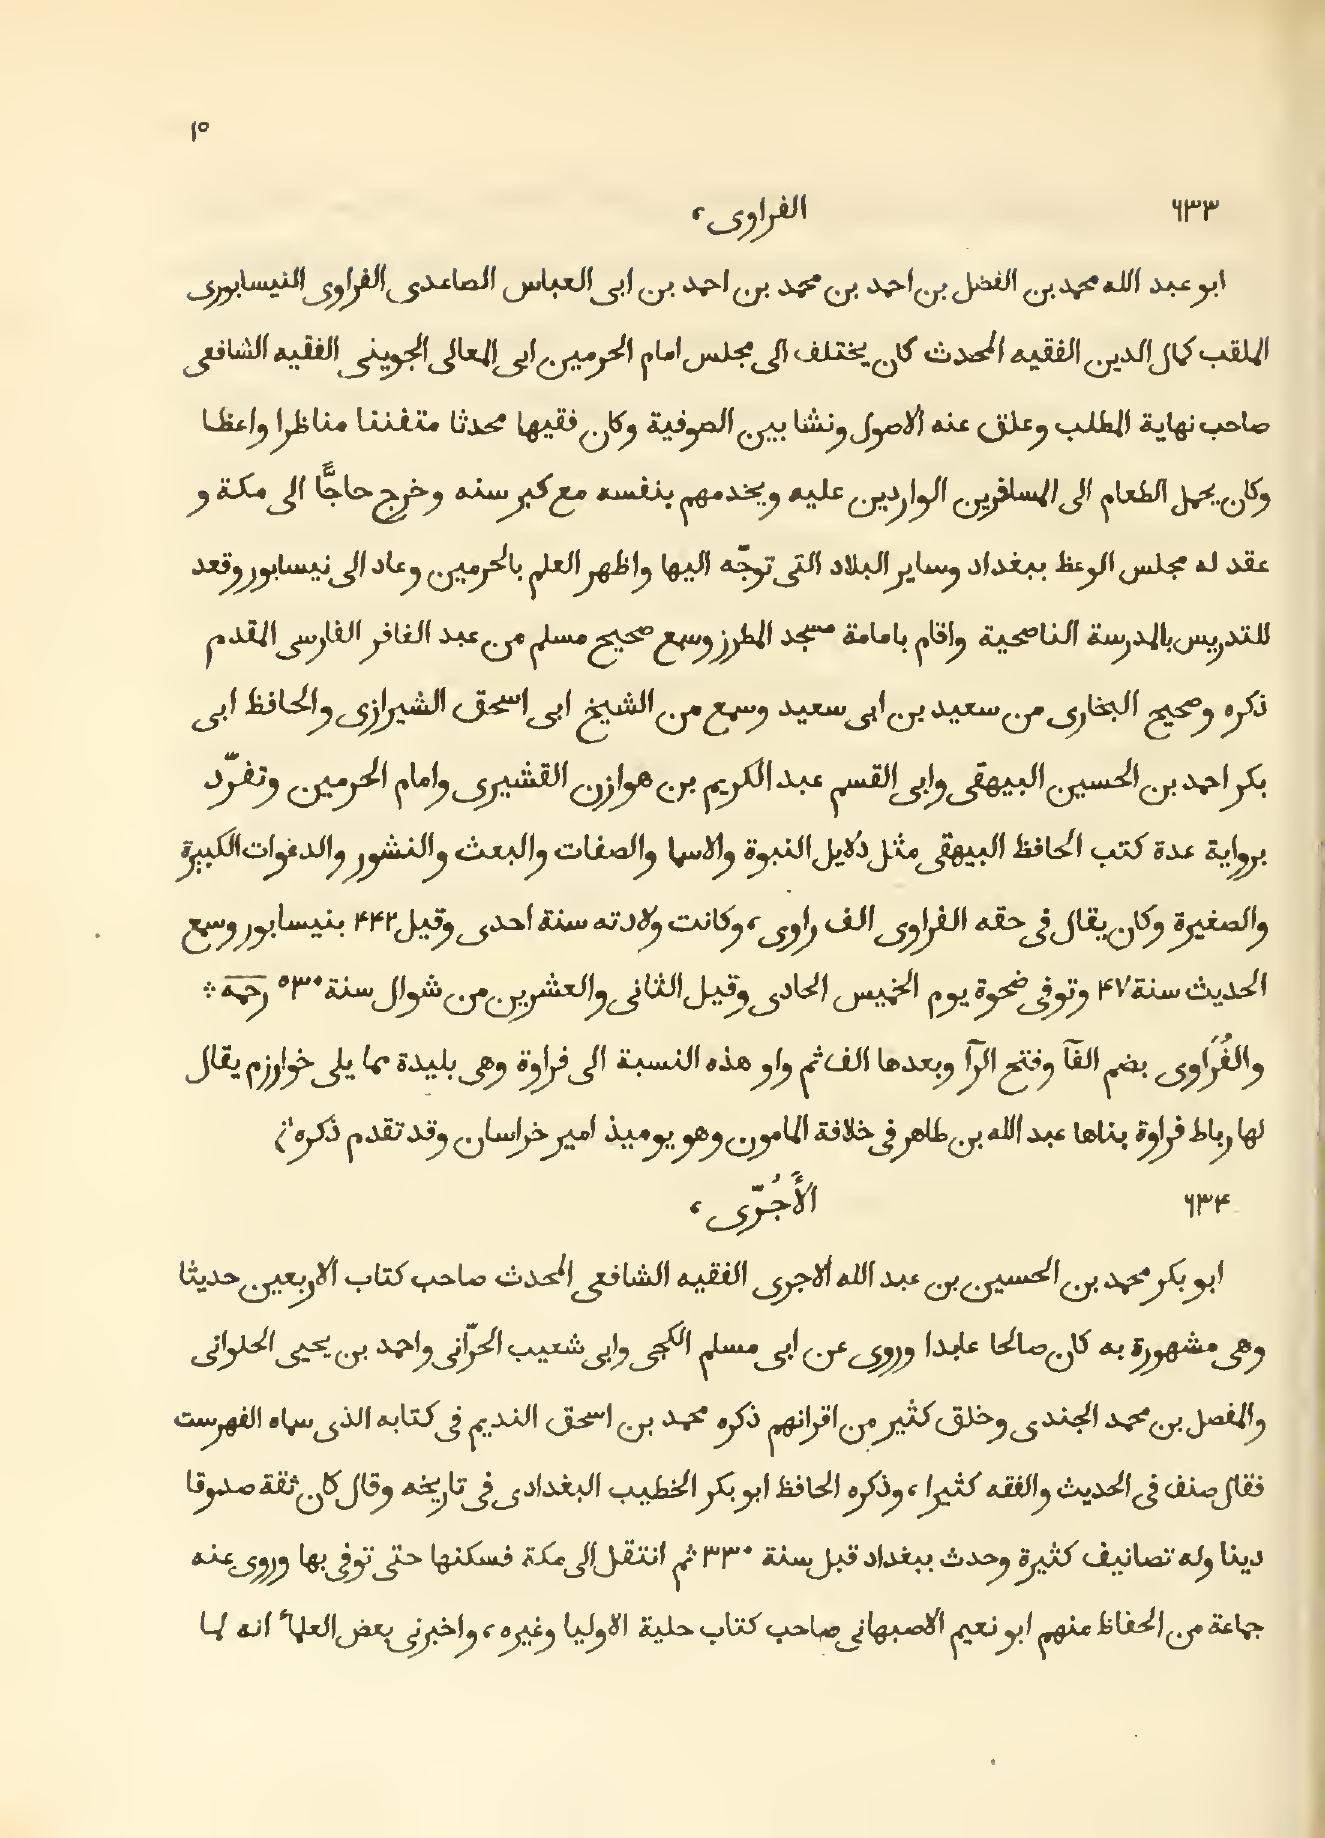 ١٥
٦٣٣ الفراوى ،
ابو عبد الله محمد بن الفضل بن احمد بن محمد بن احمد بن ابى العباس الصاعدى الفراوى النيسابورى
الملقب كمال الدين الفقيه المحدث كان يختلف الى مجلس امام الحرمين ابى المعالى الجوينى الفقيه الشافعى
صاحب نهاية المطلب وعلق عنه الاصول ونشا بين الصوفية وكان فقيها محدثا متفننا مناظرا واعظا
وكان يحمل الطعام الى المسافرين الواردين عليه ويخدمهم بنفسه مع كبر سنه وخرج حاجًّا الى مكة و
عقد له مجلس الوعظ ببغداد وساير البلاد التى توجّه اليها واظهر العلم بالحرمين وعاد الى نيسابور وقعد
للتدريس بالمدرسة الناصحية واقام بامامة مسجد المطرز وسمع صحيح مسلم من عبد الغافر الفارسى المقدم
ذكره وصحيح البخارى من سعيد بن ابى سعيد وسمع من الشيخ ابى اسحق الشيرازى والحافظ ابى
بكر احمد بن الحسين البيهقى وابى القسم عبد الكريم بن هوازن القشيرى وامام الحرمين وتفرّد
برواية عدة كتب الحافظ البيهقى مثل دلايل النبوة والاسما والصفات والبعث والنشور والدعوات الكبيرة
والصغيرة وكان يقال فى حقه الفراوى الف راوى ، وكانت ولادته سنة احدى وقيل ۴۴۲ بنيسابور وسمع
الحديث سنة ۴۷ وتوفى ضحوة يوم الخميس الحادى وقيل الثانى والعشرين من شوال سنة ٥٣٠ رحمه
والفُرَاوى بضم الفآ وفتح الرآ وبعدها الف ثم واو هذه النسبة الى فراوة وهى بليدة مما يلى خوارزم يقال
لها رباط فراوة بناها عبد الله بن طاهر فى خلافة المامون وهو يوميذ امير خراسان وقد تقدم ذكره
٦٣۴ الأَجُرّى ،
ابو بكر محمد بن الحسين بن عبد الله الاجرى الفقيه الشافعى المحدث صاحب كتاب الاربعين حديثا
وهى مشهورة به كان صالحا عابدا وروى عن ابى مسلم الكجى وابى شعيب الحرّانى واحمد بن يحيى الحلوانى
والمفصل بن محمد الجندى وخلق كثير من اقرانهم ذكره محمد بن اسحق النديم فى كتابه الذى سماه الفهرست
فقال صنف فى الحديث والفقه كثيرا ، وذكره الحافظ ابو بكر الخطيب البغدادى فى تاريخه وقال كان ثقة صدوقا
دينا وله تصانيف كثيرة وحدث ببغداد قبل سنة ٣٣٠ ثم انتقل الى مكة فسكنها حتى توفى بها وروى عنه
جماعة من الحفاظ منهم ابو نعيم الاصبهانى صاحب كتاب حلية الاوليا وغيره ، واخبرنى بعض العلمأ انه لما